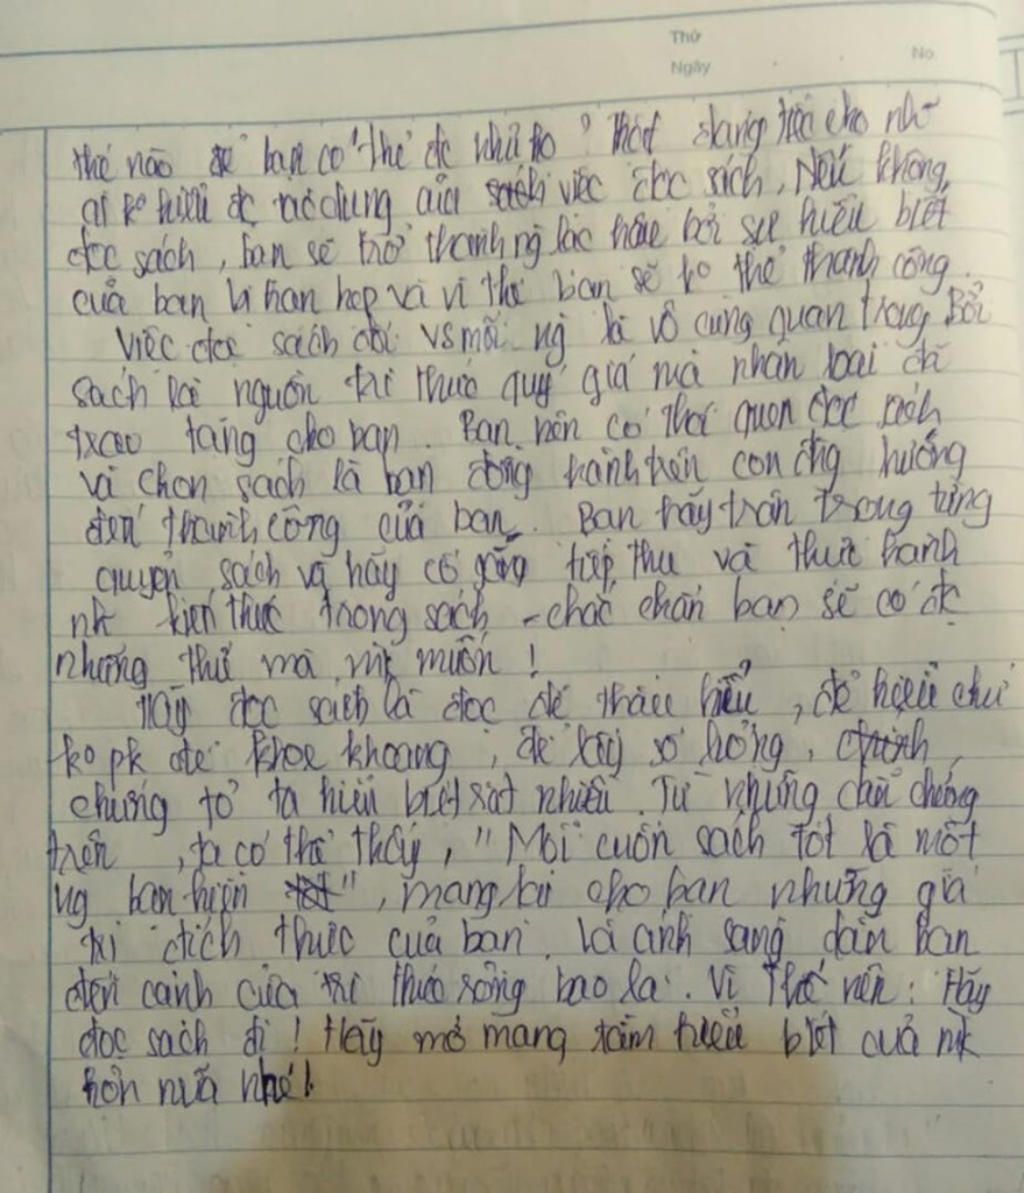 Thứ
Ngày
No
thế nào để bạn có thể đc như họ? Thật đáng trách cho nh~
ai ko hiểu đc tác dụng của việc đọc sách. Nếu không
đọc sách, bạn sẽ trở thành ng lạc hậu bởi sự hiểu biết
của bạn là hạn hẹp và vì thế bạn sẽ ko thể thành công.
Việc đọc sách đối vs mỗi ng là vô cùng quan trọng. Bởi
sách là nguồn tri thức quý giá mà nhân loại đã
trao tặng cho bạn. Bạn nên có thói quen đọc sách
và chọn sách là bạn đồng hành trên con đg hướng
đến thành công của bạn. Bạn hãy trân trọng từng
quyển sách và hãy cố gắng tiếp thu và thực hành
nh kiến thức trong sách - chắc chắn bạn sẽ có đc
những thứ mà mk muốn!
Hãy đọc sách là đọc để thấu hiểu, để hiểu chứ
ko pk để khoe khoang, để lấy số lượng,
chứng tỏ ta hiểu biết rất nhiều. Từ những dẫn chứng
trên, ta có thể thấy, "Mỗi cuốn sách tốt là một
ng bạn hiền", mang lại cho bạn những giá
trị đích thực của bạn. Là ánh sáng dẫn bạn
đến cánh cửa tri thức rộng bao la. Vì thế nên: Hãy
đọc sách đi! Hãy mở mang tầm hiểu biết của mk
hơn nữa nhé!